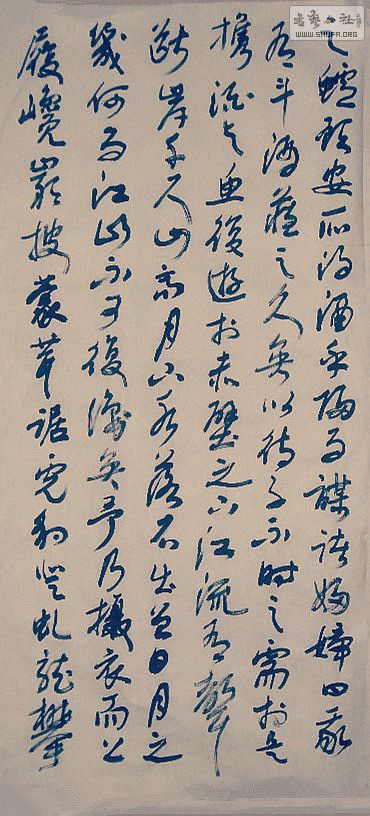 之鱸顧安所得酒乎歸而謀諸婦婦曰我
有斗酒藏之久矣以待子不時之需於是
攜酒與魚復遊於赤壁之下江流有聲
斷岸千尺山高月小水落石出曾日月之
幾何而江山不可復識矣予乃攝衣而上
履巉巖披蒙茸踞虎豹登虬龍攀
WWW.SHUFA.ORG